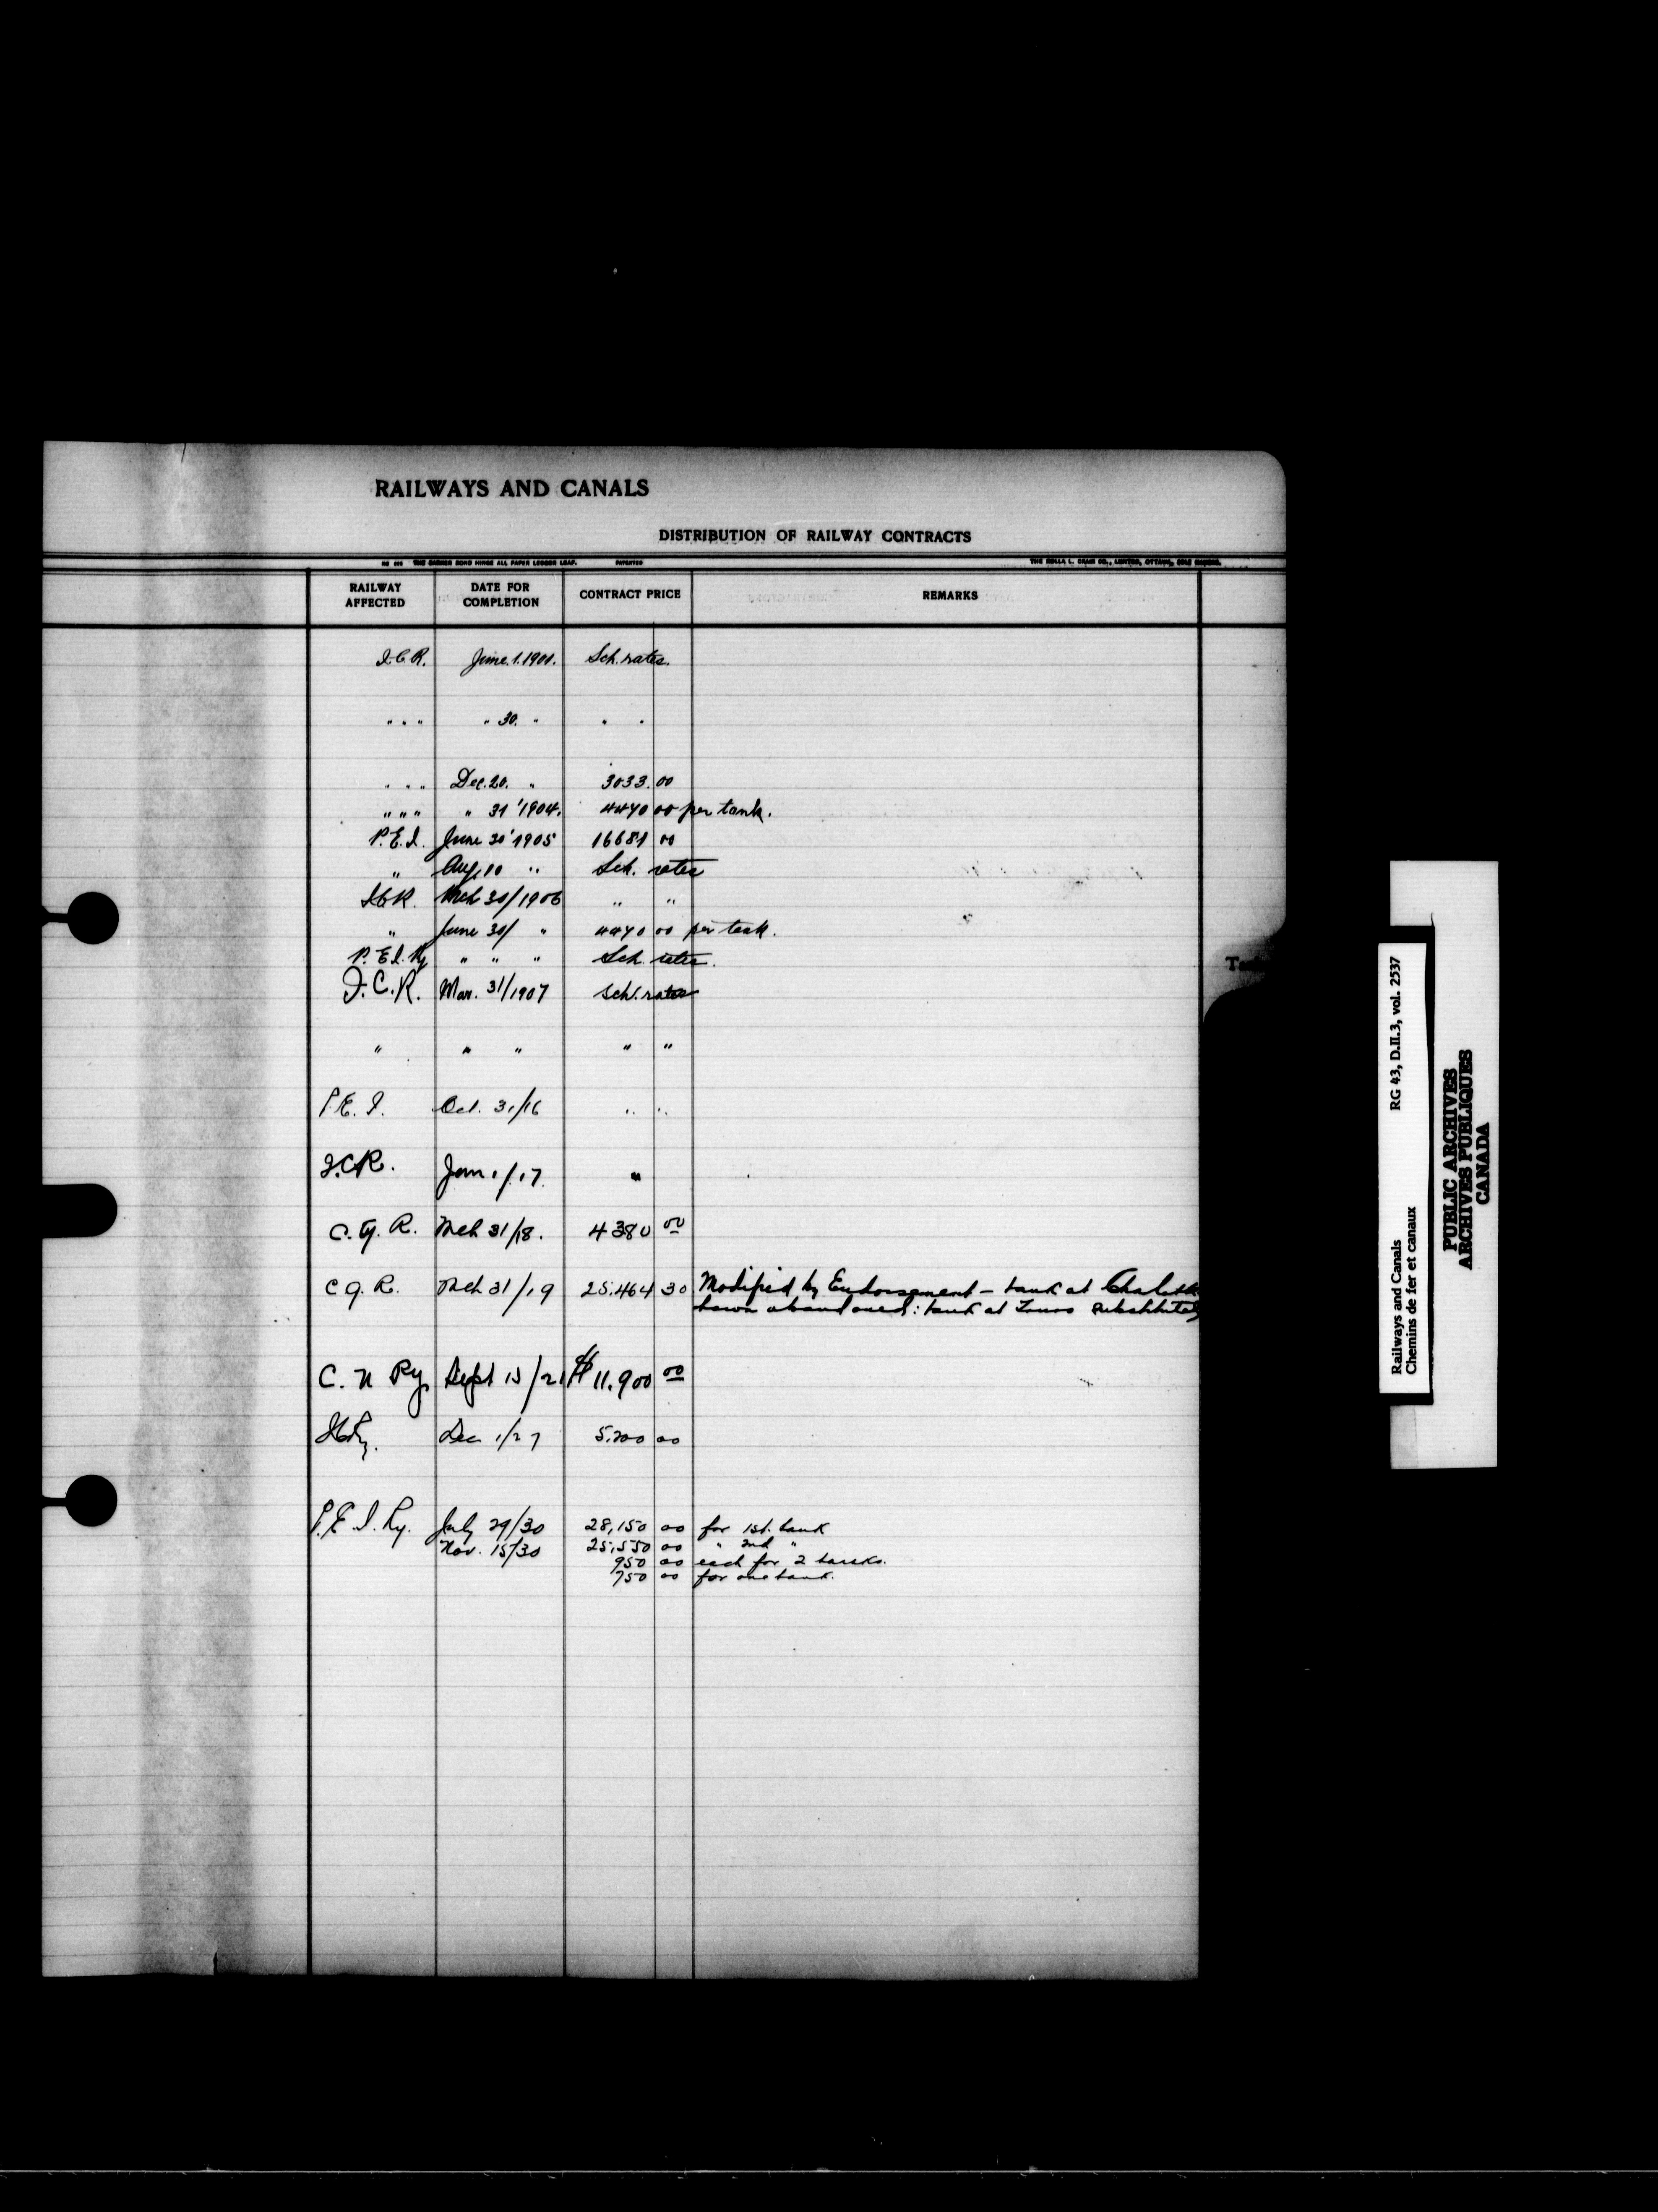 RAILWAYS AND CANALS
DISTRIBUTION OF RAILWAY CONTRACTS
RAILWAY AFFECTED DATE FOR COMPLETION CONTRACT PRICE REMARKS
I.C.R. June.1.1901. Sch. rates.
" " " " 30. " " "
" " " Dec. 20. " 3033.00
" " " " 31 '1904. 4470 00 per tank.
P.E.I. June 30' 1905 16681 00
" Aug. 10 " Sch. rates
I.C.R. Mch 30/1906 " "
" June 30/ " 4470 00 per tank.
P.E.I. Ry " " " Sch. rates.
I.C.R. Mar. 31/1907 sch. rates
" " " " "
P.E.I. Oct. 31/16 " "
I.C.R. Jan. 1/17. "
C.G.R. Mch 31/18. 4380 00
C G. R. Mch 31/19 25,464 30 Modified by Endorsement - tank at
town abandoned: tank at Truro substituted
C. N Ry. Sept 15/21 $11,900 00
Dec 1/27 5,200 00
P.E.I. Ry. July 29/30 28,150 00 for 1st. tank
Nov. 15/30 25,550 00 " 2nd "
950 00 each for 2 tanks.
750 00 for one tank.
RG 43, D.II.3, vol. 2537
Railways and Canals
Chemins de fer et canaux
PUBLIC ARCHIVES
ARCHIVES PUBLIQUES
CANADA